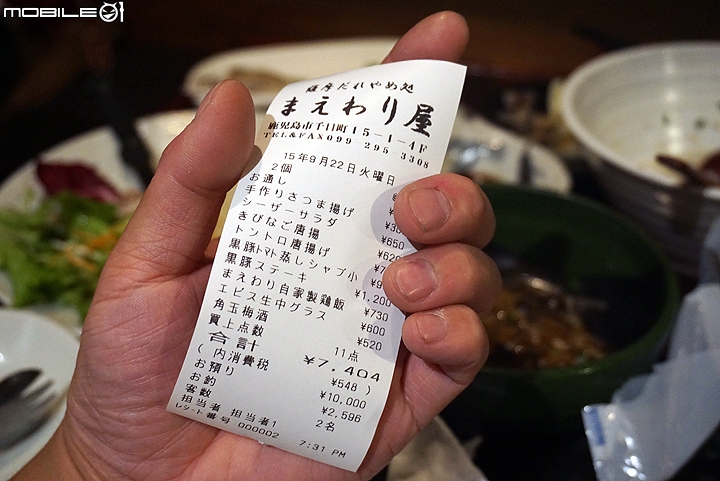 MOBILE01
薩摩だれやめ処
まえわり屋
鹿児島市千日町15-1-4F
TEL&FAX099 295 3308
15年9月22日火曜日
2個
お通し
手作りさつま揚げ
シーザーサラダ
きびなご唐揚 ¥650
トントロ唐揚げ ¥620
黒豚トマト蒸しシャブ小
黒豚ステーキ
まえわり自家製鶏飯 ¥1,200
エビス生中グラス ¥730
角玉梅酒 ¥600
買上点数 ¥520
11点
合計 ¥7,404
( 内消費税 ¥548 )
お預り ¥10,000
お釣 ¥2,596
客数 2名
担当者 担当者1
レシート番号 000002 7:31 PM